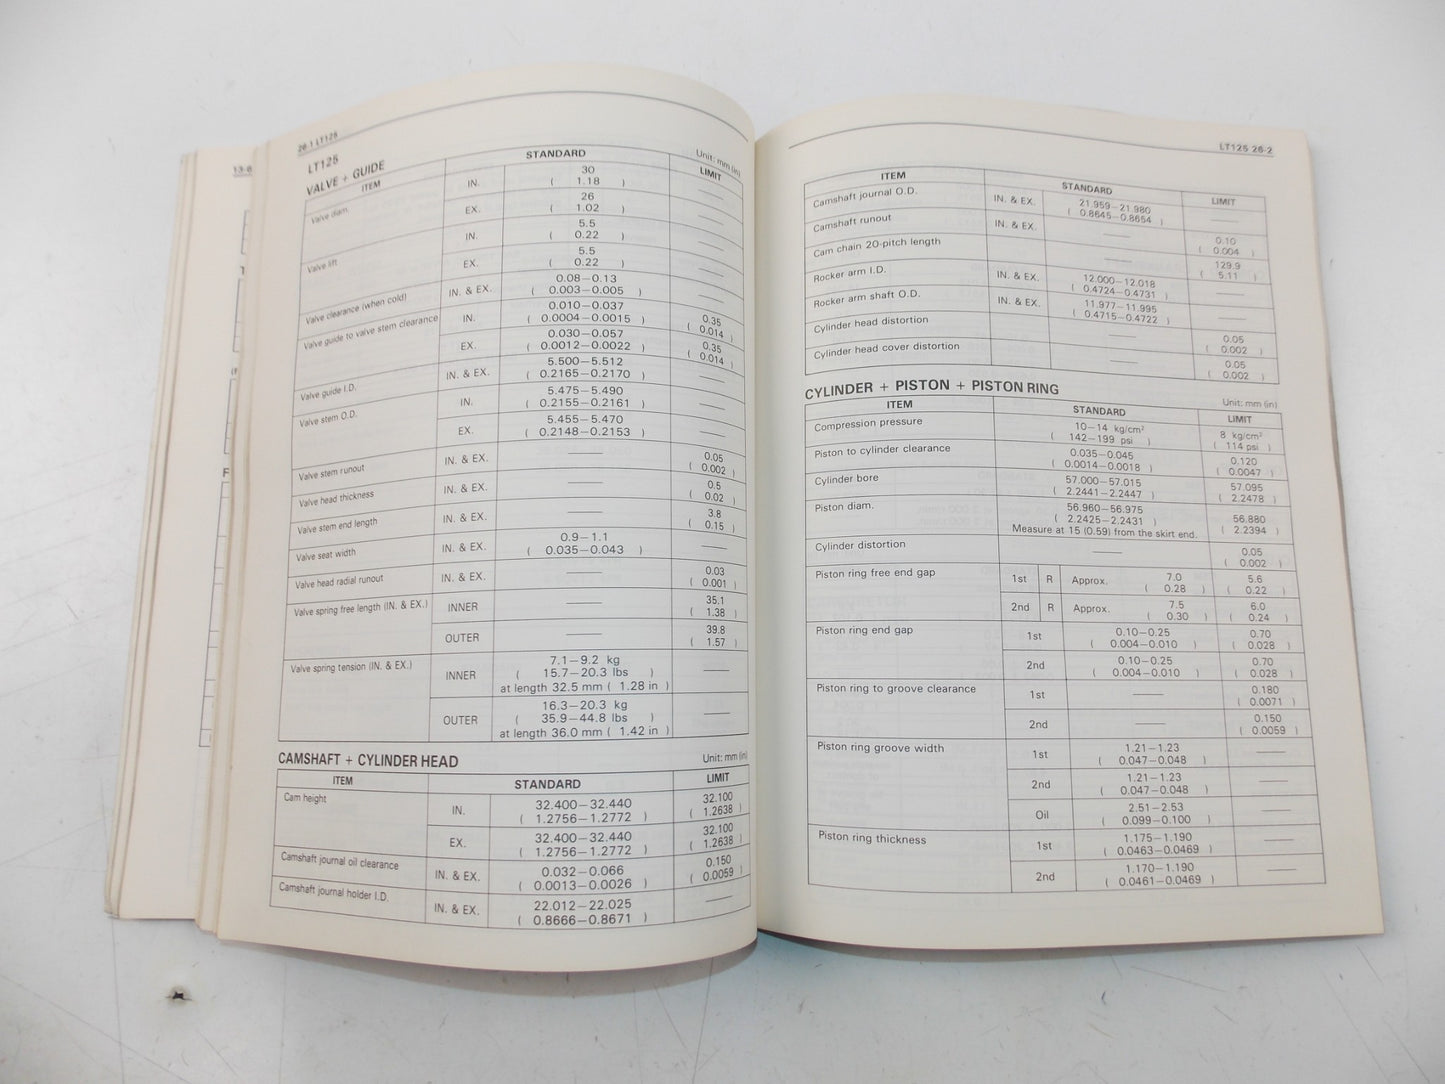 13-6
T
F
26-1 LT125
LT125
VALVE + GUIDE
Unit: mm (in)
ITEM STANDARD LIMIT
Valve diam. IN. 30 ( 1.18 ) ——
EX. 26 ( 1.02 ) ——
Valve lift IN. 5.5 ( 0.22 ) ——
EX. 5.5 ( 0.22 ) ——
Valve clearance (when cold) IN. & EX. 0.08–0.13 ( 0.003–0.005 ) ——
Valve guide to valve stem clearance IN. 0.010–0.037 ( 0.0004–0.0015 ) 0.35 ( 0.014 )
EX. 0.030–0.057 ( 0.0012–0.0022 ) 0.35 ( 0.014 )
Valve guide I.D. IN. & EX. 5.500–5.512 ( 0.2165–0.2170 ) ——
Valve stem O.D. IN. 5.475–5.490 ( 0.2155–0.2161 ) ——
EX. 5.455–5.470 ( 0.2148–0.2153 ) ——
Valve stem runout IN. & EX. —— 0.05 ( 0.002 )
Valve head thickness IN. & EX. —— 0.5 ( 0.02 )
Valve stem end length IN. & EX. —— 3.8 ( 0.15 )
Valve seat width IN. & EX. 0.9–1.1 ( 0.035–0.043 ) ——
Valve head radial runout IN. & EX. —— 0.03 ( 0.001 )
Valve spring free length (IN. & EX.) INNER —— 35.1 ( 1.38 )
OUTER —— 39.8 ( 1.57 )
Valve spring tension (IN. & EX.) INNER 7.1–9.2 kg ( 15.7–20.3 lbs ) at length 32.5 mm ( 1.28 in ) ——
OUTER 16.3–20.3 kg ( 35.9–44.8 lbs ) at length 36.0 mm ( 1.42 in ) ——
CAMSHAFT + CYLINDER HEAD
Unit: mm (in)
ITEM STANDARD LIMIT
Cam height IN. 32.400–32.440 ( 1.2756–1.2772 ) 32.100 ( 1.2638 )
EX. 32.400–32.440 ( 1.2756–1.2772 ) 32.100 ( 1.2638 )
Camshaft journal oil clearance IN. & EX. 0.032–0.066 ( 0.0013–0.0026 ) 0.150 ( 0.0059 )
Camshaft journal holder I.D. IN. & EX. 22.012–22.025 ( 0.8666–0.8671 ) ——
LT125 26-2
ITEM STANDARD LIMIT
Camshaft journal O.D. IN. & EX. 21.959–21.980 ( 0.8645–0.8654 ) ——
Camshaft runout IN. & EX. —— 0.10 ( 0.004 )
Cam chain 20-pitch length —— 129.9 ( 5.11 )
Rocker arm I.D. IN. & EX. 12.000–12.018 ( 0.4724–0.4731 ) ——
Rocker arm shaft O.D. IN. & EX. 11.977–11.995 ( 0.4715–0.4722 ) ——
Cylinder head distortion —— 0.05 ( 0.002 )
Cylinder head cover distortion —— 0.05 ( 0.002 )
CYLINDER + PISTON + PISTON RING
Unit: mm (in)
ITEM STANDARD LIMIT
Compression pressure 10–14 kg/cm² ( 142–199 psi ) 8 kg/cm² ( 114 psi )
Piston to cylinder clearance 0.035–0.045 ( 0.0014–0.0018 ) 0.120 ( 0.0047 )
Cylinder bore 57.000–57.015 ( 2.2441–2.2447 ) 57.095 ( 2.2478 )
Piston diam. 56.960–56.975 ( 2.2425–2.2431 ) Measure at 15 (0.59) from the skirt end. 56.880 ( 2.2394 )
Cylinder distortion —— 0.05 ( 0.002 )
Piston ring free end gap 1st R Approx. 7.0 ( 0.28 ) 5.6 ( 0.22 )
2nd R Approx. 7.5 ( 0.30 ) 6.0 ( 0.24 )
Piston ring end gap 1st 0.10–0.25 ( 0.004–0.010 ) 0.70 ( 0.028 )
2nd 0.10–0.25 ( 0.004–0.010 ) 0.70 ( 0.028 )
Piston ring to groove clearance 1st —— 0.180 ( 0.0071 )
2nd —— 0.150 ( 0.0059 )
Piston ring groove width 1st 1.21–1.23 ( 0.047–0.048 ) ——
2nd 1.21–1.23 ( 0.047–0.048 ) ——
Oil 2.51–2.53 ( 0.099–0.100 ) ——
Piston ring thickness 1st 1.175–1.190 ( 0.0463–0.0469 ) ——
2nd 1.170–1.190 ( 0.0461–0.0469 ) ——